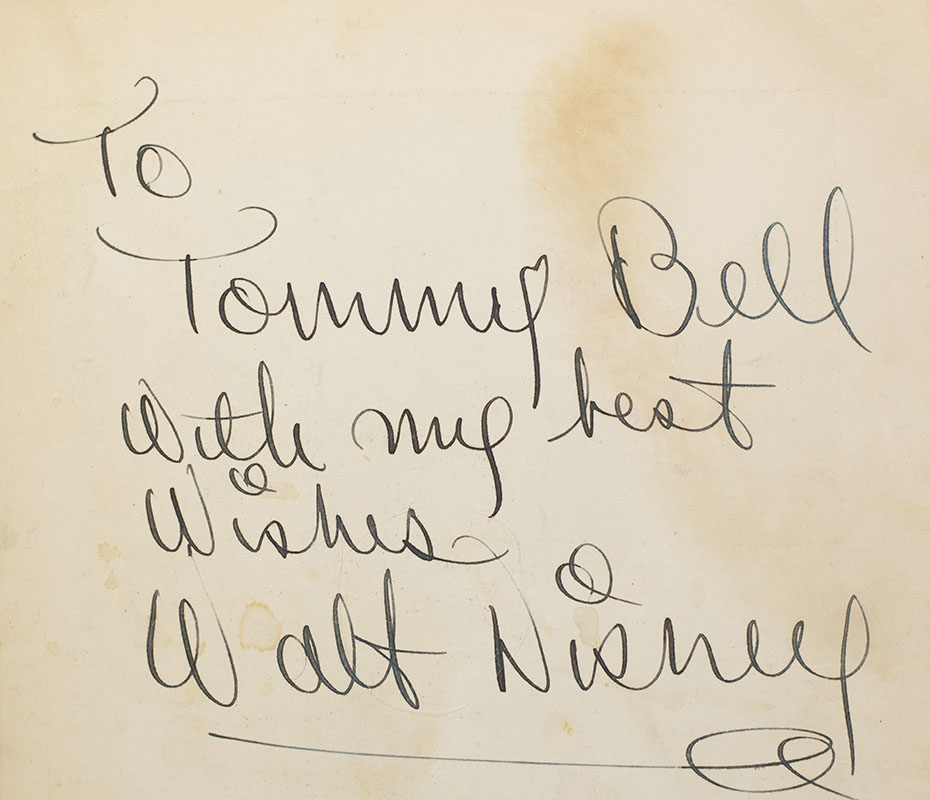 To
Tommy Bell
With my best
Wishes
Walt Disney